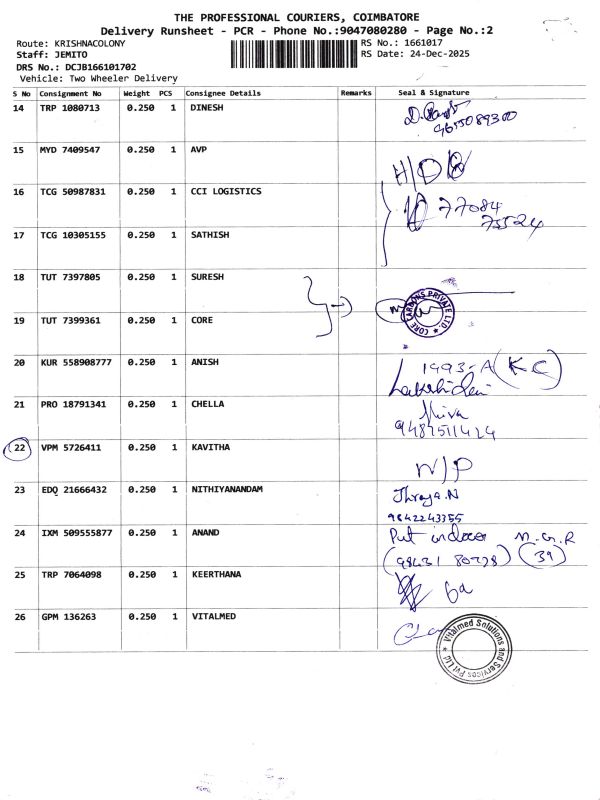 THE PROFESSIONAL COURIERS, COIMBATORE
Delivery Runsheet - PCR - Phone No.:9047080280 - Page No.:2
Route: KRISHNACOLONY RS No.: 1661017
Staff: JEMITO RS Date: 24-Dec-2025
DRS No.: DCJB166101702
Vehicle: Two Wheeler Delivery
S No Consignment No Weight PCS Consignee Details Remarks Seal & Signature
14 TRP 1080713 0.250 1 DINESH
9655089300
15 MYD 7409547 0.250 1 AVP
16 TCG 50987831 0.250 1 CCI LOGISTICS
77084
75524
17 TCG 10305155 0.250 1 SATHISH
18 TUT 7397805 0.250 1 SURESH
CORE CARBONS PRIVATE LTD
19 TUT 7399361 0.250 1 CORE
20 KUR 558908777 0.250 1 ANISH
1993-A KC
21 PRO 18791341 0.250 1 CHELLA
Shiva
9487511424
22 VPM 5726411 0.250 1 KAVITHA
N/P
23 EDQ 21666432 0.250 1 NITHIYANANDAM
9842243355
24 IXM 509555877 0.250 1 ANAND
Put indoor M.G.R
(98431 80778) 39
25 TRP 7064098 0.250 1 KEERTHANA
6a
26 GPM 136263 0.250 1 VITALMED
Vitalmed Solutions and Services Pvt Ltd